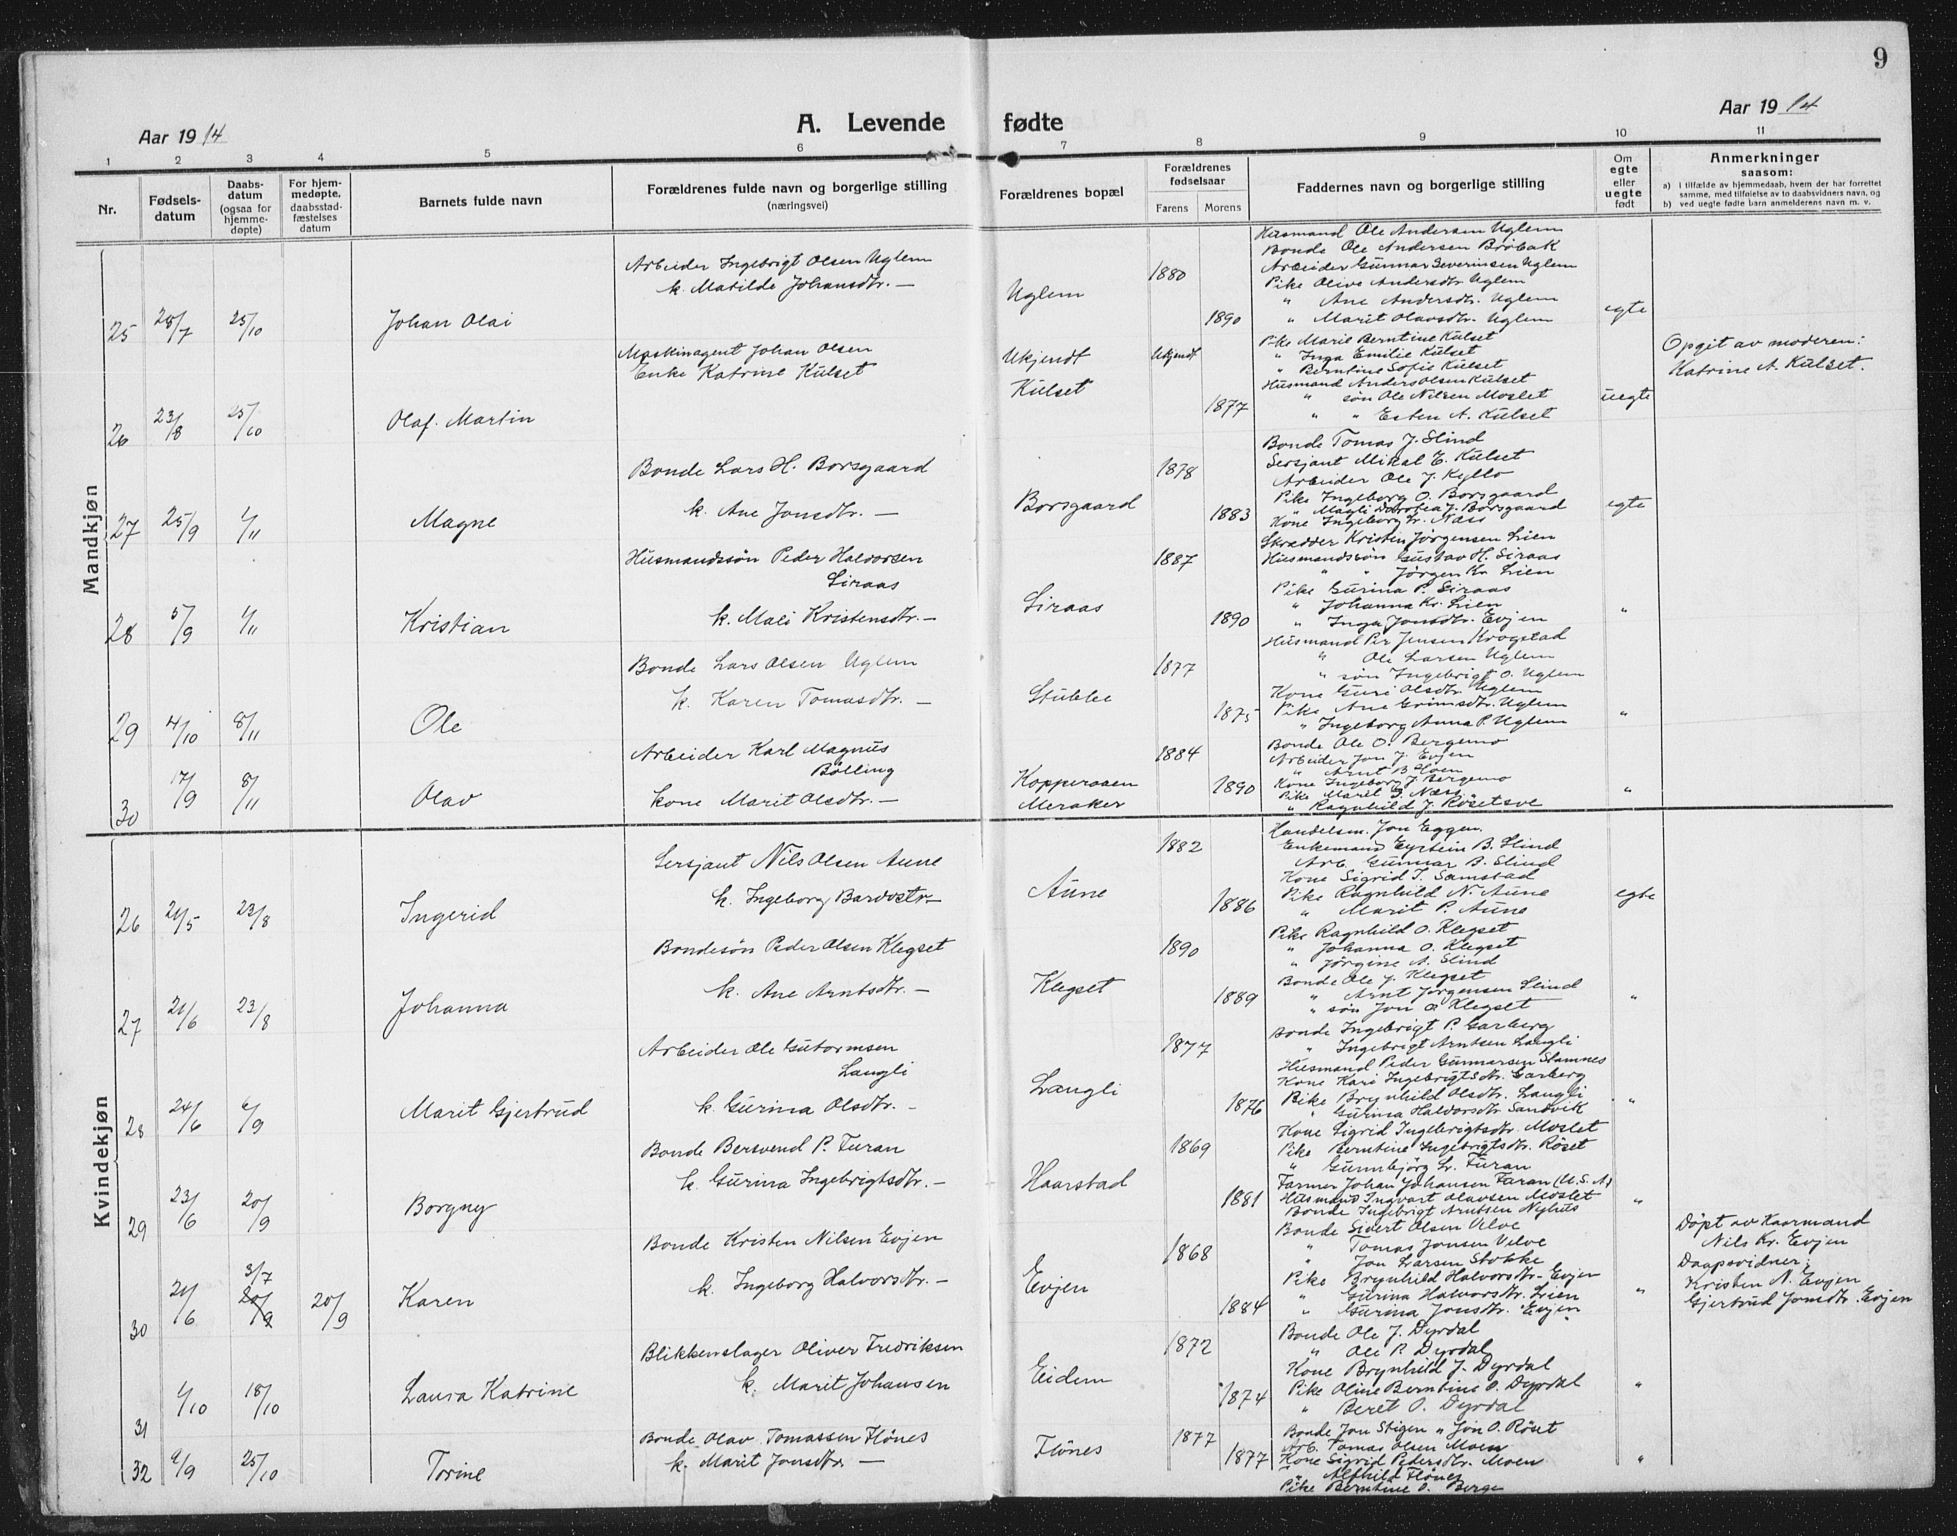 9
Aar 1914
A. Levende fødte
Aar 1914
1 2 3 4 5 6 7 8 9 10 11
Nr.
Fødselsdatum
Daabsdatum (ogsaa for hjemmedøpte)
For hjemmedøpte, daabsstadfæstelses datum
Barnets fulde navn
Forældrenes fulde navn og borgerlige stilling
(næringsvei)
Forældrenes bopæl
Forældrenes fødselsaar
Farens Morens
Faddernes navn og borgerlig stilling
Om egte eller uegte født
Anmerkninger
saasom:
a) I tilfælde av hjemmedaab, hvem der har forrettet samme, med tilføielse av to daabsvidners navn, og
b) ved uegte fødte barn anmelderens navn m. v.
Mandkjøn
25 28/7 25/10 Johan Olai
Arbeider Ingebrigt Olsen Uglem
k. Matilde Johansdtr. —
Uglem 1880 1890
Husmand Ole Andersen Uglem
Bonde Ole Andersen Bröbak
Arbeider Gunnar Severinsen Uglem
Pike Olive Andersdtr Uglem
" Ane Andersdtr. Uglem
" Marit Olavsdtr. Uglem
egte
26 23/8 25/10 Olaf Martin
Maskinagent Johan Olsen
Enke Katrine Kulset
Ukjendt
Kulset
Ukjendt 1877
Pike Marie Berntine Kulset
" Inga Emilie Kulset
" Berntine Sofie Kulset
Husmand Anders Olsen Kulset
" søn Ole Nilsen Moslet
" " Esten A. Kulset
uegte
Opgit av moderen:
Katrine A. Kulset.
27 25/9 1/11 Magne
Bonde Lars H. Borsgaard
k. Ane Jonsdtr. —
Borsgaard 1878 1883
Bonde Tomas J. Slind
Sersjant Mikal E. Kulset
Arbeider Ole J. Kyllo
Pike Ingeborg O. Borsgaard
" Magli Dorotea J. Borsgaard
Kone Ingeborg Lr. Næss
egte
28 5/9 1/11 Kristian
Husmandssön Peder Halvorsen
Siraas
k. Mali Kristensdtr. —
Siraas 1887 1890
Skrædder Kristen Jørgensen Lien
Husmandssön Gustav H. Siraas
" " Jörgen Kr. Lien
Pike Gurina P. Siraas
" Johanna Kr. Lien
" Inga Jonsdtr. Evjen
"
29 4/10 8/11 Ole
Bonde Lars Olsen Uglem
k. Karen Tomasdtr. —
Stubbe 1877 1875
Husmand Per Jensen Krogstad
" Ole Larsen Uglem
" søn Ingebrigt O. Uglem
Kone Guri Olsdtr Uglem
Pike Ane Grimsdtr. Uglem
" Ingeborg Anna P. Uglem
"
30 17/9 8/11 Olav
Arbeider Karl Magnus
Bölling
kone Marit Olsdtr. —
Kopperaaen
Meraker
1884 1890
Bonde Ole O. Bergemo
Arbeider Jon J. Evjen
" Arnt B. Moen
Kone Ingeborg J. Bergemo
Pike Marit G. Næss
" Ragnhild J. Rösetsve
"
Kvindekjøn
26 21/5 23/8 Ingerid
Sersjant Nils Olsen Aune
k. Ingeborg Bardosdtr —
Aune 1882 1886
Handelsm. Jon Eggen.
Enkemand Eystein B. Slind
Arb. Gunnar B. Slind
Kone Sigrid T. Samstad
Pike Ragnhild N. Aune
" Marit P. Aune
egte
27 21/6 23/8 Johanna
Bondesön Peder Olsen Klegset
k. Ane Arntsdtr. —
Klegset 1890 1889
Pike Ragnhild O. Klegset
" Johanna O. Klegset
" Jörgine A. Slind
Bonde Ole J. Klegset
" Arnt Jörgensen Slind
" søn Jon O Klegset
"
28 24/6 6/9 Marit Gjertrud
Arbeider Ole Gutormsen
Langli
k. Gurina Olsdtr. —
Langli 1877 1876
Bonde Ingebrigt P. Garberg
" Ingebrigt Arntsen Langli
Husmand Peder Gunnarsen Stamnes
Kone Kari Ingebrigtsdtr. Garberg
Pike Brynhild Olsdtr. Langli
" Gurina Halvorsdtr Sandvik
"
29 23/6 20/9 Borgny
Bonde Bersvend P. Furan
k. Gurina Ingebrigtsdtr. —
Haarstad 1869 1881
Kone Sigrid Ingebrigtsdtr. Moslet
Pike Berntine Ingebrigtsdtr. Röset
" Gunnbjörg Lr. Furan
Farmer Johan Johansen Faran (U.S.A)
Husmand Ingvart Olavsen Moslet
Bonde Ingebrigt Arntsen Nyhus
"
30 21/6 3/7 20/9 20/9 Karen
Bonde Kristen Nilsen Evjen
k. Ingeborg Halvorsdtr. —
Evjen 1868 1884
Bonde Sivert Olsen Velve
" Tomas Jonsen Velve
" Jon Larsen Stokke
Pike Brynhild Halvorsdtr. Evjen
" Gurina Halvorsdtr. Lien
" Gurina Jonsdtr. Evjen
"
Döpt av Kaarmand
Nils Kr. Evjen
Daapsvidner:
Kristen N. Evjen
Gjertrud Jonsdtr. Evjen
31 1/10 18/10 Laura Katrine
Blikkenslager Oliver Fredriksen
k. Marit Johansen
Eidem 1872 1874
Bonde Ole J. Dyrdal
" Ole P. Dyrdal
Kone Brynhild J. Dyrdal
Pike Oline Berntine O. Dyrdal
" Beret O. Dyrdal
"
32 9/9 25/10 Torine
Bonde Olav Tomassen Flönes
k. Marit Jonsdtr. —
Flönes 1877 1877
Bonde Jon Stigen " Jon O. Röset
Arb. Tomas Olsen Moen
Kone Sigrid Pedersdtr. Moen
" Alfhild Flönes
Pike Berntine O. Berge
"